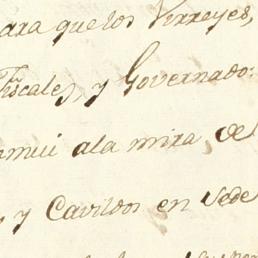 para que los Virreyes,
Fiscales, y Governado:
mui a la mira, de
, y Cavildos en sede